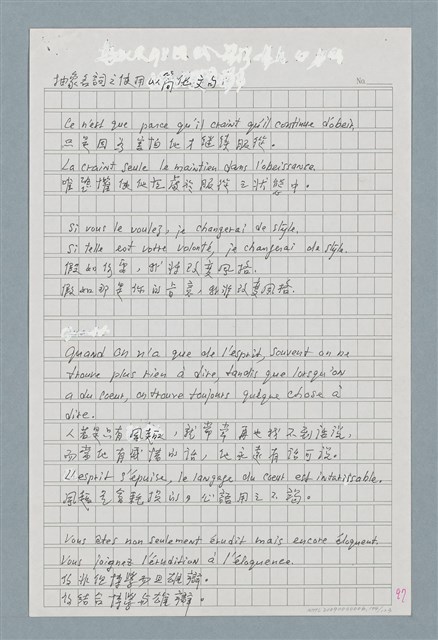 抽象名詞之使用以簡化文句.
No.
Ce n'est que parce qu'il craint qu'il continue d'obéir,
只是因為害怕他才继续服從。
La craint seule le maintien dans l'obeissance.
唯恐懼使他處於服從之狀態中。
Si vous le voulez, je changerai de style.
Si telle est votre volonté, je changerai de style.
假如你要，我將改變風格.
假如那是你的旨意，我將改變風格.
Quand on n'a que de l'esprit, souvent on ne
trouve plus rien à dire, tandis que lorsqu'on
a du cœur, on trouve toujours quelque chose à
dire.
人若是只有風趣，就常常再也找不到話說，
而當他有感情的話，他永遠有話可說。
L'esprit s'épuise, le language du cœur est intarissable.
風趣是會耗損的，心語用之不竭。
Vous êtes non seulement érudit mais encore éloquent.
Vous joignez l'érudition à l'éloquence.
你非但博學而且雄辯。
你結合博學與雄辯。
27